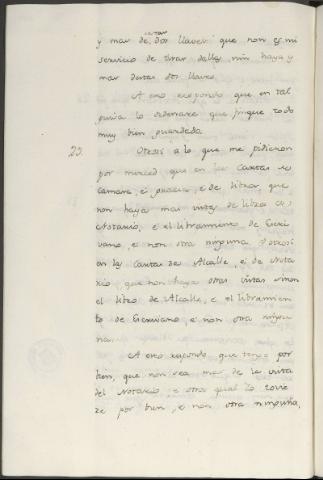 y mas de estas dos llaves que non es mi
servicio de tirar dellas, nin haya y
mas destas dos llaves.
A esto respondo que en tal
guisa lo ordenare que finque todo
muy bien guardado.
23. Otrosi a lo que me pidieron
por merced, que en las Cartas de
Camara, e de librar que
non haya mas vistas de libro
Notario, e el libramiento de Escri-
vano, e non otra ninguna. Otrosi
en las Cartas de Alcalle, e de Nota-
rio, que non haya otras vistas sinon
el libro de Alcalle, e el libramien-
to de Escrivano e non otra ningu-
na.
A esto respondo, que tengo por
bien, que non sea mas de la vista
del Notario e otra qual lo tovie-
re por bien, e non otra ninguna,